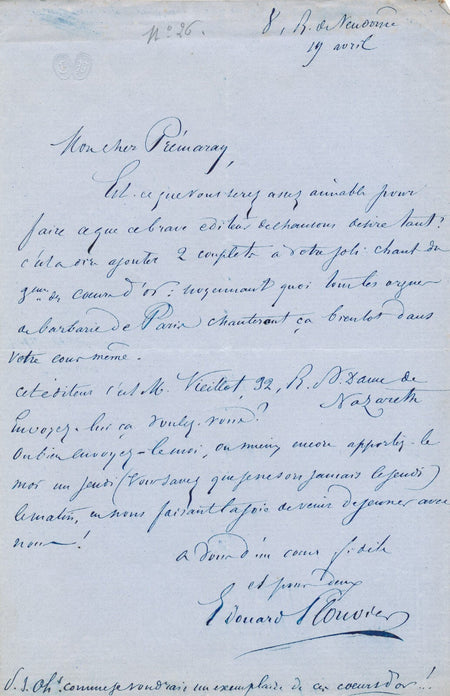 No 26.
8, R. de Vendôme
19 avril
Mon cher Prémaray,
Est-ce que vous serez assez aimable pour
faire ce que ce brave éditeur de chansons désire tant?
c'est à dire ajouter 2 couplets à votre joli chant du
3eme des coeurs d'or: moyennant quoi tous les orgues
de barbarie de Paris chanteront ça bientôt dans
votre cour même.
cet éditeur c'est M. Vieillot, 32, R. N. Dame de
Nazareth
Envoyez-lui ça voulez-vous?
Ou bien envoyez-le moi, ou mieux encore apportez-le
moi un jeudi (vous savez que je ne sors jamais le jeudi)
le matin, en nous faisant la joie de venir déjeuner avec
nous!
à vous d'un coeur fidèle
et pour deux
Edouard Plouvier
P.S. Oh! comme je voudrais un exemplaire de ces coeurs d'or!!